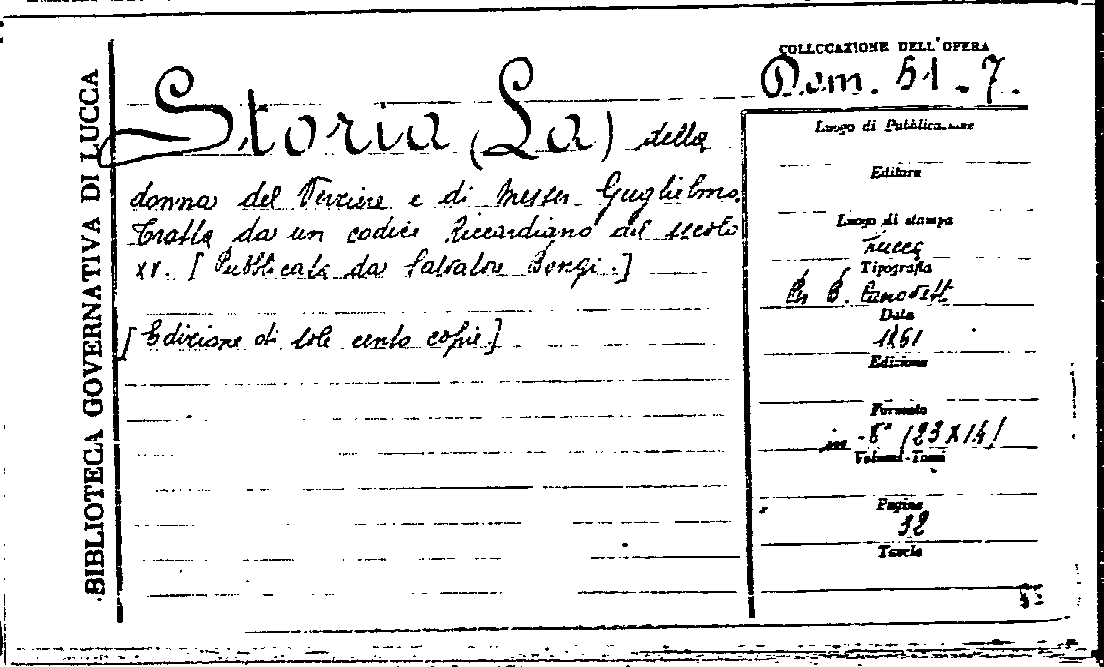 BIBLIOTECA GOVERNATIVA DI LUCCA
COLLOCAZIONE DELL'OPERA
Dom. 51-7.
Storia (La) della
donna del Verziere e di Messer Guglielmo.
Tratta da un codice Riccardiano del secolo
XV. [Pubblicata da Salvatore Bongi.]
[Edizione di sole cento copie]
Luogo di Pubblicazione
Editore
Luogo di stampa
Lucca
Tipografia
Per B. Canovetti
Data
1861
Edizione
Formato
in-8° (23X14)
Volumi-Tomi
Pagine
32
Tavole